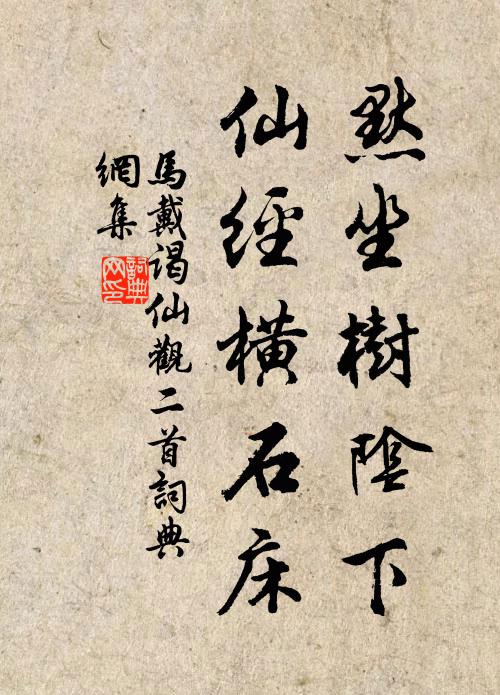 默坐樹陰下
仙經橫石床
馬戴謁仙觀二首詞典
網集
詞典網印